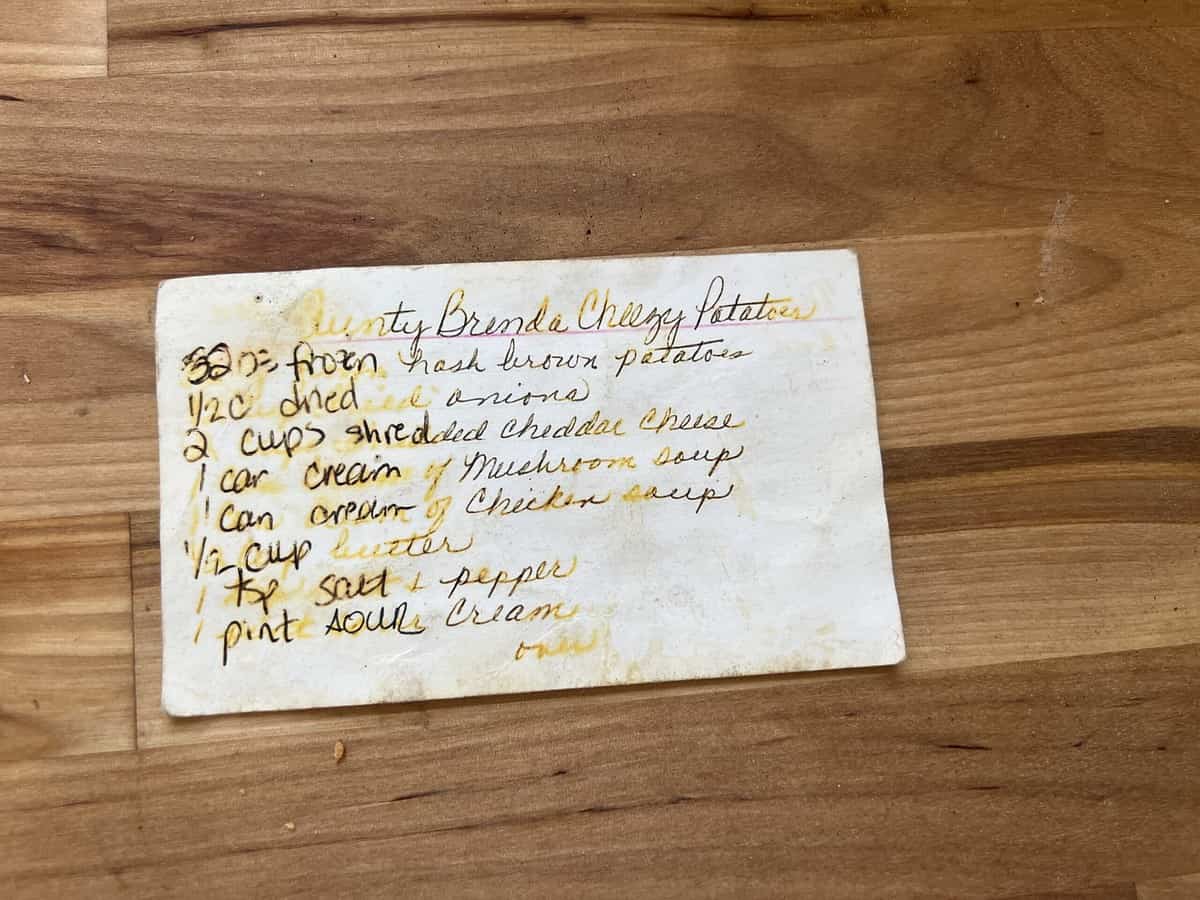 Aunty Brenda Cheezy Potatoes
32 oz frozen hash brown potatoes
1/2 c dried onions
2 cups shredded cheddar cheese
1 can cream of Mushroom soup
1 can cream of Chicken soup
1/2 cup butter
1 tsp salt & pepper
1 pint SOUR Cream
over